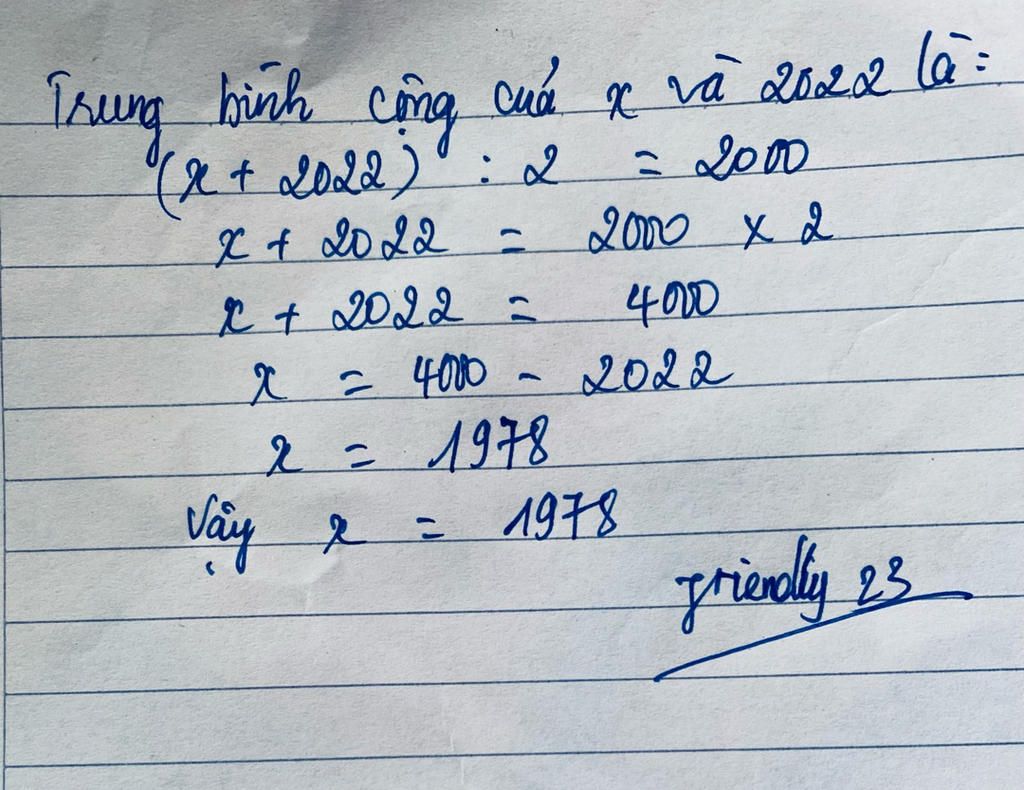 Trung bình cộng của x và 2022 là:
(x + 2022) : 2 = 2000
x + 2022 = 2000 x 2
x + 2022 = 4000
x = 4000 - 2022
x = 1978
Vậy x = 1978
friendly 23